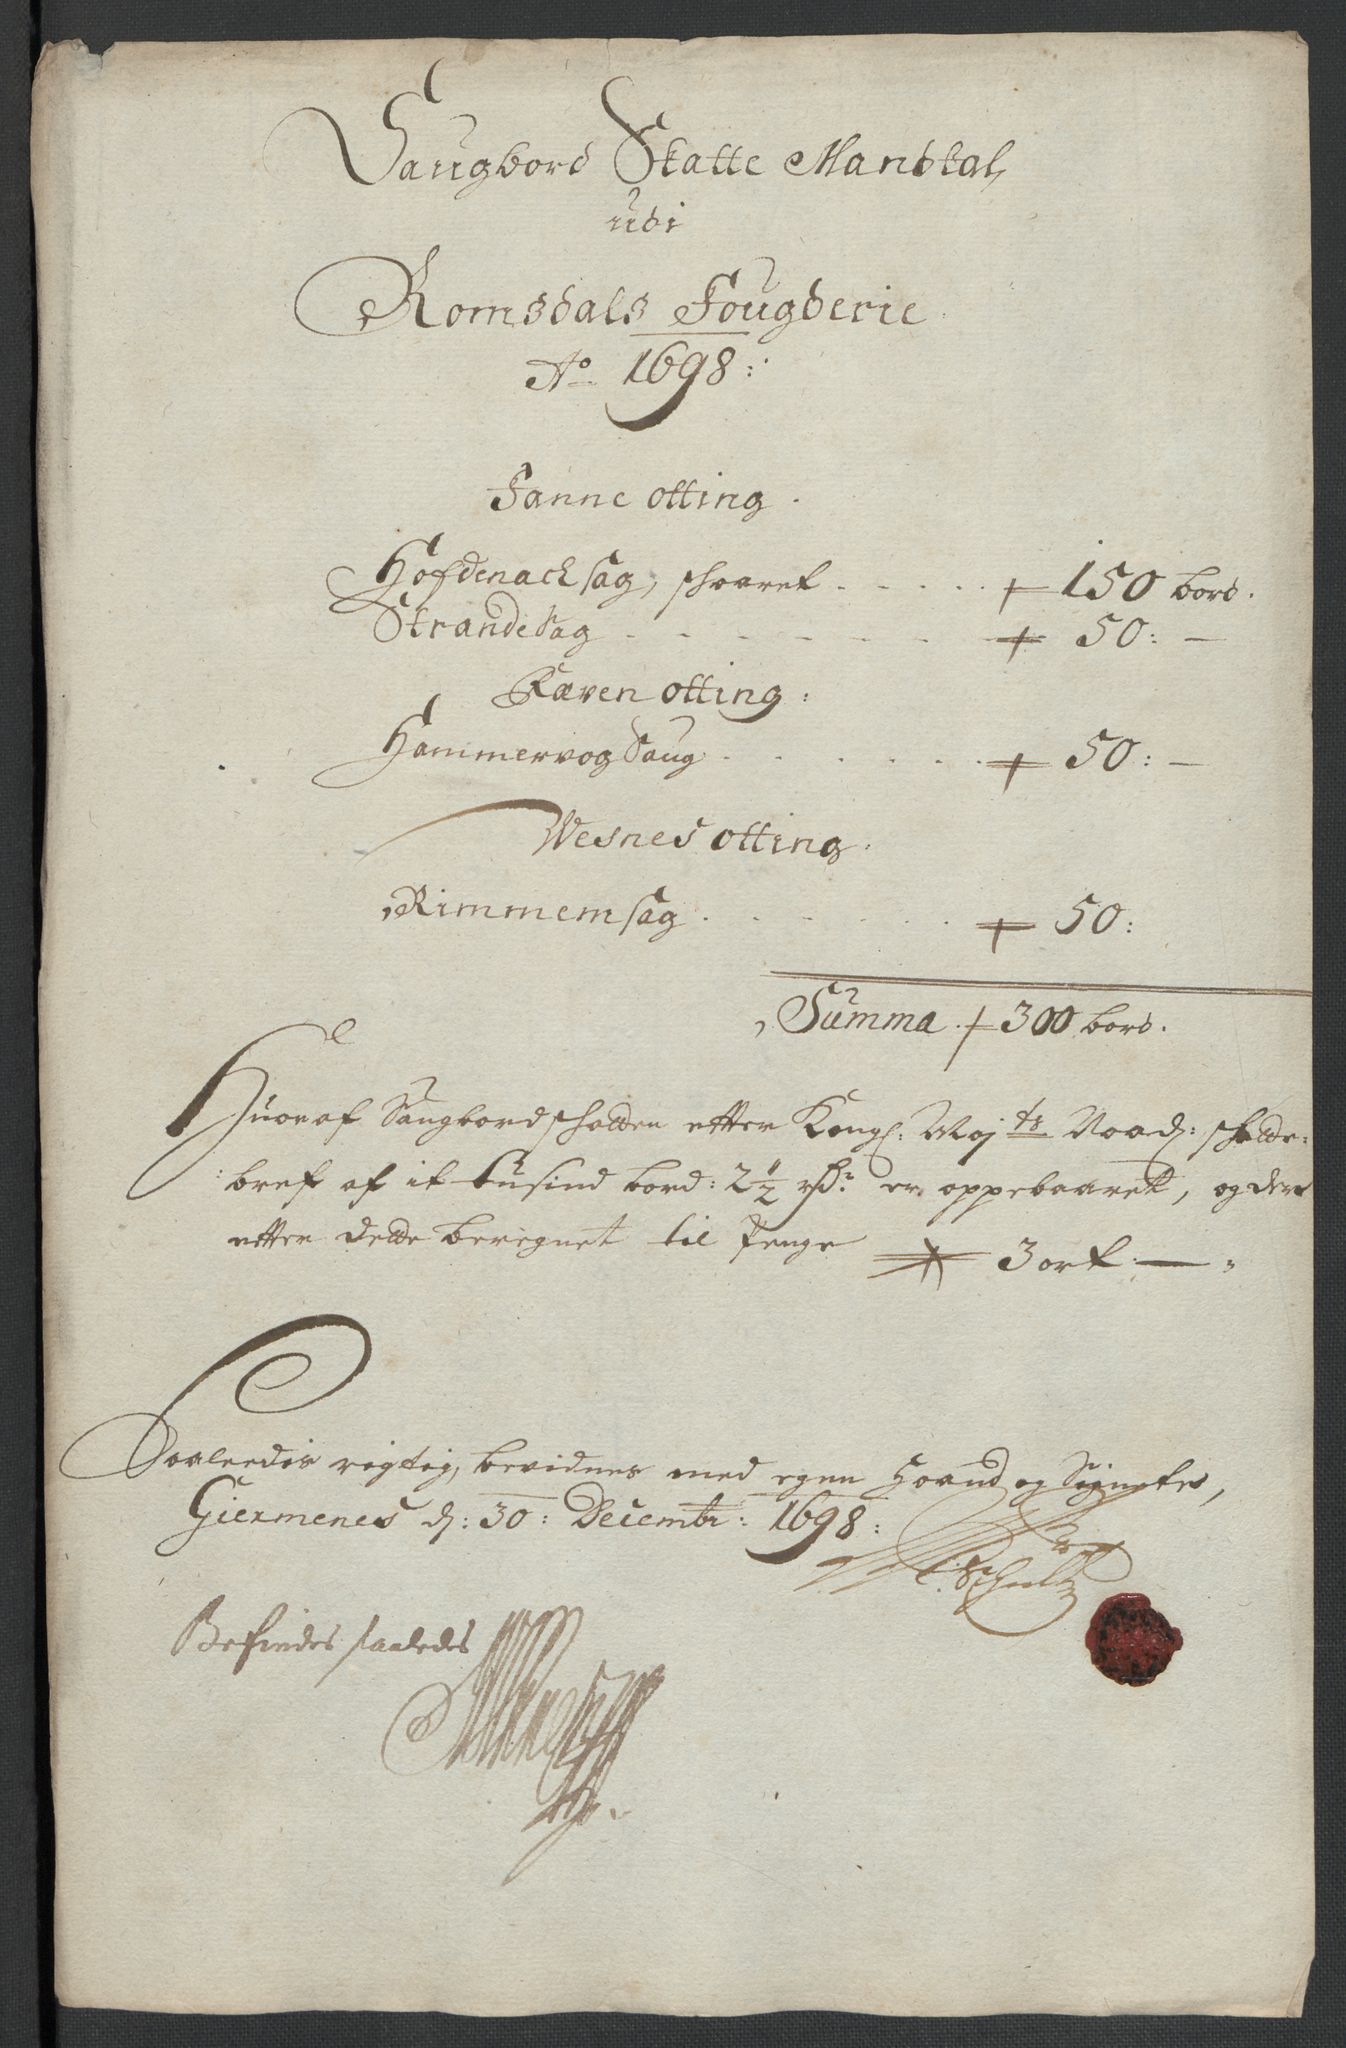 Saugbord Skatte Mandtal,
udi
Romsdals Fougderie
Ao 1698:
Fanne otting.
Hofdenack sag, skaaret . . . . 150 bord.
Strande Sag . . . . 50: —
Ræven otting:
Hammervog Saug . . . . 50: —
Wesnes otting:
Rimmem sag . . . . 50:
Summa . 300 bord.
Huoraf Saugbord skatten efter Kongl: Maj ts Naad: skatte-
bref af it tusind bord: 2½ rdr er oppebaaret, og der
efter dette beregnet til Penge 3 ort: —
Saaleedis rigtig, bevidnes med egen Haand og Signete,
Giermenes d: 30: Decembr: 1698:
Schultz
Befindes saaledes